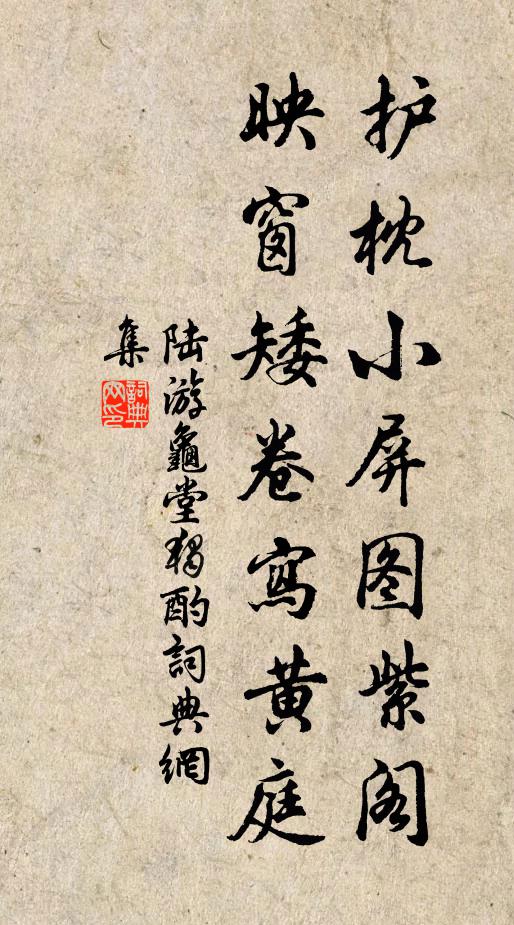 护枕小屏图紫阁
映窗矮卷写黄庭
陆游龟堂独酌词典網
集
詞典網印